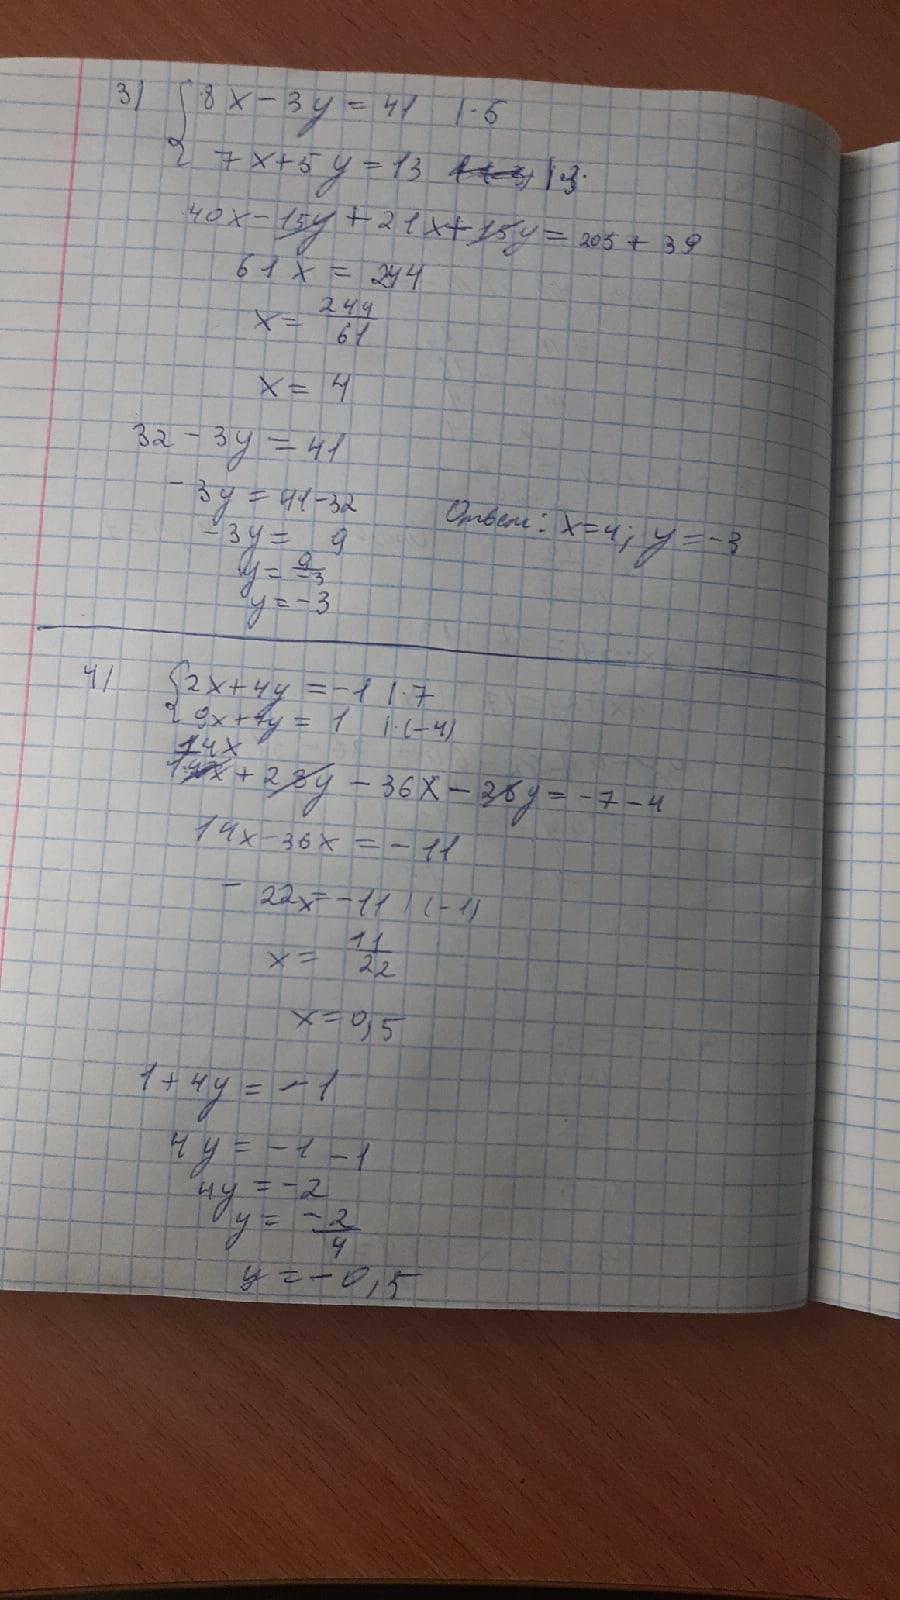 3) { 8x - 3y = 41 | · 5
7x + 5y = 13 | · 3
40x - 15y + 21x + 15y = 205 + 39
61x = 244
x = 244/61
x = 4
32 - 3y = 41
-3y = 41 - 32
-3y = 9
y = 9/-3
y = -3
Ответ: x=4; y=-3
4) { 2x + 4y = -1 | · 7
9x + 7y = 1 | · (-4)
14x + 28y - 36x - 28y = -7 - 4
14x - 36x = -11
-22x = -11 | (-1)
x = 11/22
x = 0,5
1 + 4y = -1
4y = -1 - 1
4y = -2
y = -2/4
y = -0,5